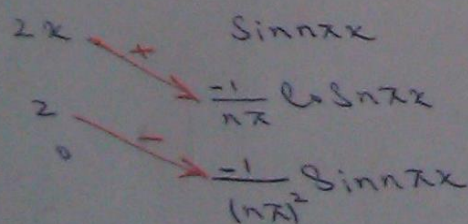 2x sin nπx
+
-1/nπ cos nπx
2
-
0
-1/(nπ)² sin nπx